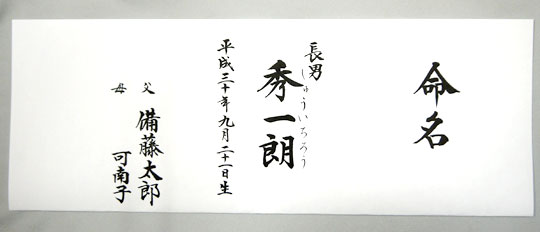 命名
長男
秀一朗
しゅういちろう
平成三十年九月二十一日生
父 備藤太郎
母 可南子